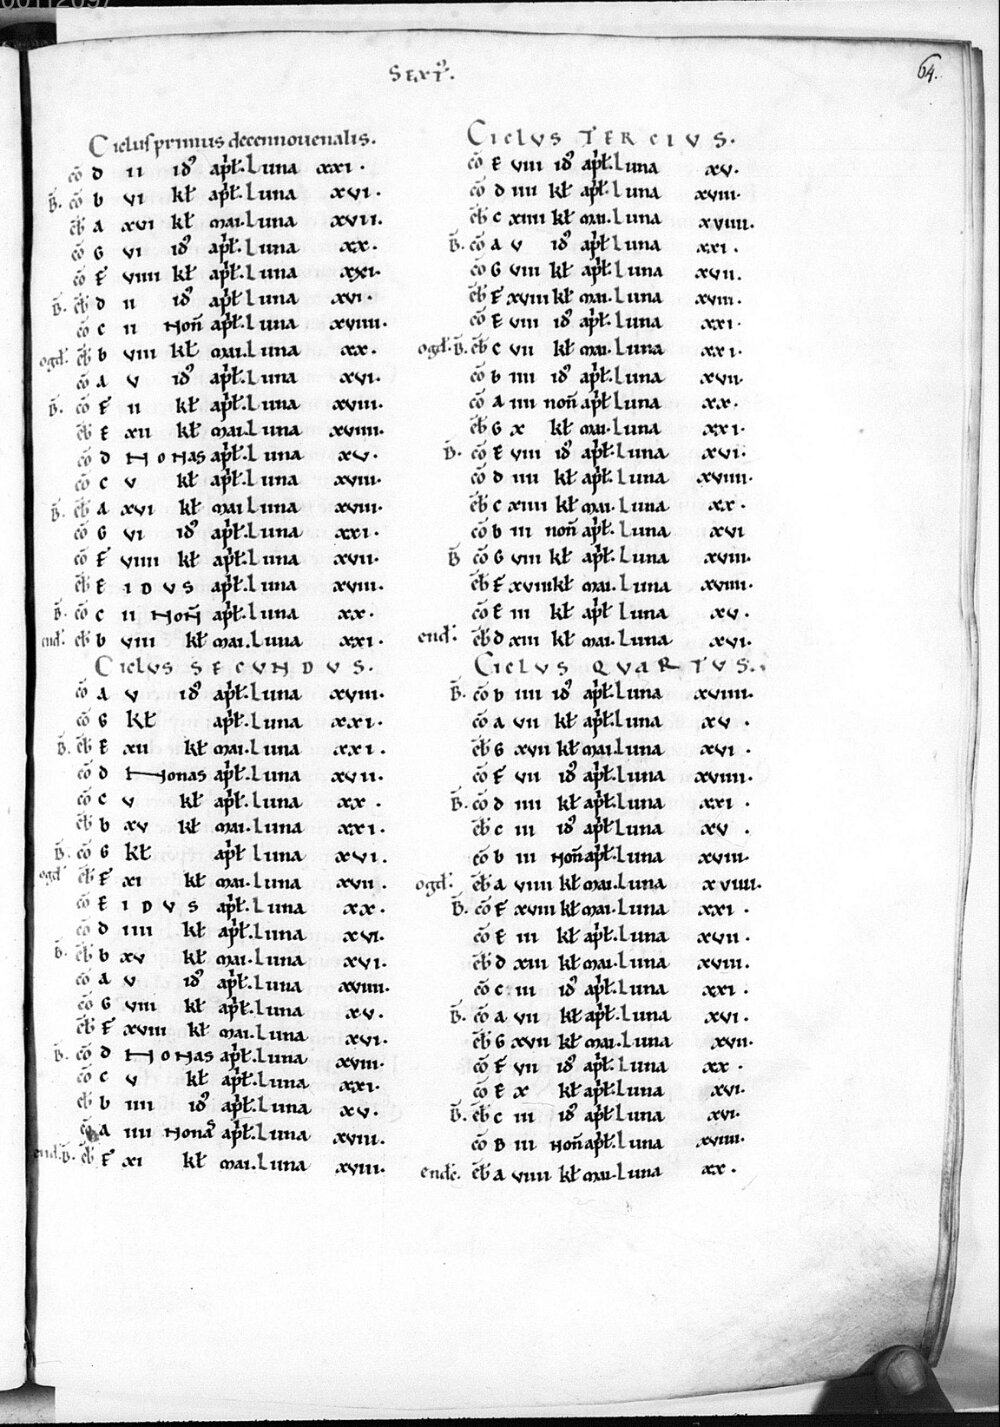 Sexꝰ.
64.
Ciclus primus decennouenalis.
cō d ii idꝰ apł. Luna xxi.
B. cō b vi kł apł. Luna xvi.
eb̄ a xvi kł mai. Luna xvii.
cō G vi idꝰ apł. Luna xx.
cō F viiii kł apł. Luna xxi.
B. eb̄ d ii idꝰ apł. Luna xvi.
cō c ii Noñ apł. Luna xviiii.
ogd. eb̄ b viii kł mai. Luna xx.
cō a v idꝰ apł. Luna xvi.
B. cō F ii kł apł. Luna xviii.
eb̄ E xii kł mai. Luna xviiii.
cō d Nonas apł. Luna xv.
cō c v kł apł. Luna xviii.
B. eb̄ a xvi kł mai Luna xviii.
cō G vi idꝰ apł. Luna xxi.
cō F viiii kł apł. Luna xvii.
eb̄ E IDVS apł. Luna xviii.
B. cō c ii Noñ apł. Luna xx.
end. eb̄ b viii kł mai. Luna xxi.
Ciclus SECVNDVS.
cō a v idꝰ apł. Luna xviii.
cō G kł apł. Luna xxi.
B. eb̄ E xii kł mai. Luna xxi.
cō d Nonas apł. Luna xvii.
cō c v kł apł. Luna xx.
eb̄ b xv kł mai. Luna xxi.
B. cō G kł apł Luna xvi.
ogd. eb̄ F xi kł mai. Luna xvii.
cō E IDVS apł. Luna xx.
cō d iiii kł apł. Luna xvi.
B. eb̄ b xv kł mai. Luna xvi.
cō a v idꝰ apł. Luna xviiii.
cō G viii kł apł. Luna xv.
eb̄ F xviii kł mai. Luna xvi.
B. cō d Nonas apł. Luna xviii.
cō c v kł apł. Luna xxi.
eb̄ b iiii idꝰ apł. Luna xv.
cō a iiii Nonas apł. Luna xviii.
end. B. eb̄ F xi kł mai. Luna xviii.
Ciclus TERCIVS.
cō E viii idꝰ apł. Luna xv.
cō d iiii kł apł. Luna xviii.
eb̄ c xiiii kł mai. Luna xviiii.
B. cō a v idꝰ apł. Luna xxi.
cō G viii kł apł. Luna xvii.
eb̄ F xviii kł mai. Luna xviii.
cō E viii idꝰ apł. Luna xxi.
ogd. B. eb̄ c vii kł mai. Luna xxi.
cō b iiii idꝰ apł. Luna xvii.
cō a iiii noñ apł. Luna xx.
eb̄ G x kł mai. Luna xxi.
B. cō E viii idꝰ apł. Luna xvi.
cō d iiii kł apł. Luna xviiii.
eb̄ c xiiii kł mai. Luna xx.
cō b iii noñ apł. Luna xvi
B cō G viii kł apł. Luna xviii.
eb̄ F xviii kł mai. Luna xviiii.
cō E iii kł apł. Luna xv.
end. eb̄ d xiii kł mai. Luna xvi.
Ciclus QVARTVS.
B. cō b iiii idꝰ apł. Luna xviiii.
cō a vii kł apł. Luna xv.
eb̄ G xvii kł mai. Luna xvi.
cō F vii idꝰ apł. Luna xviiii.
B. cō d iiii kł apł. Luna xxi.
eb̄ c iii idꝰ apł Luna xv.
cō b iii Noñ apł. Luna xviii.
ogd. eb̄ a viiii kł mai. Luna xviiii.
B. cō F xviii kł mai. Luna xxi.
cō E iii kł apł. Luna xvii.
eb̄ d xiii kł mai. Luna xviii.
cō c iii idꝰ apł. Luna xxi.
B. cō a vii kł apł. Luna xvi.
eb̄ G xvii kł mai. Luna xvii.
cō F vii idꝰ apł. Luna xx.
cō E x kł apł. Luna xvi.
B. eb̄ c iii idꝰ apł. Luna xvi.
cō B iii Noñ apł. Luna xviiii.
ende. eb̄ a viiii kł mai. Luna xx.